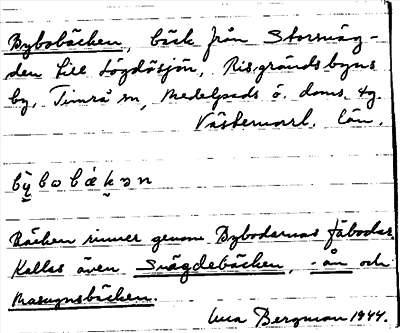 Bybobäcken, bäck från Storsväg-
den till Lögdösjön, Risgrändsbyns
by, Timrå sn, Medelpads ö. doms. tg.
Västernorrl. län.
bỳbobák̬ən
Bäcken rinner genom Bybodarnas fäbodar.
Kallas även Svägdebäcken, -ån och
Masugnsbäcken.
Bergman 1944.